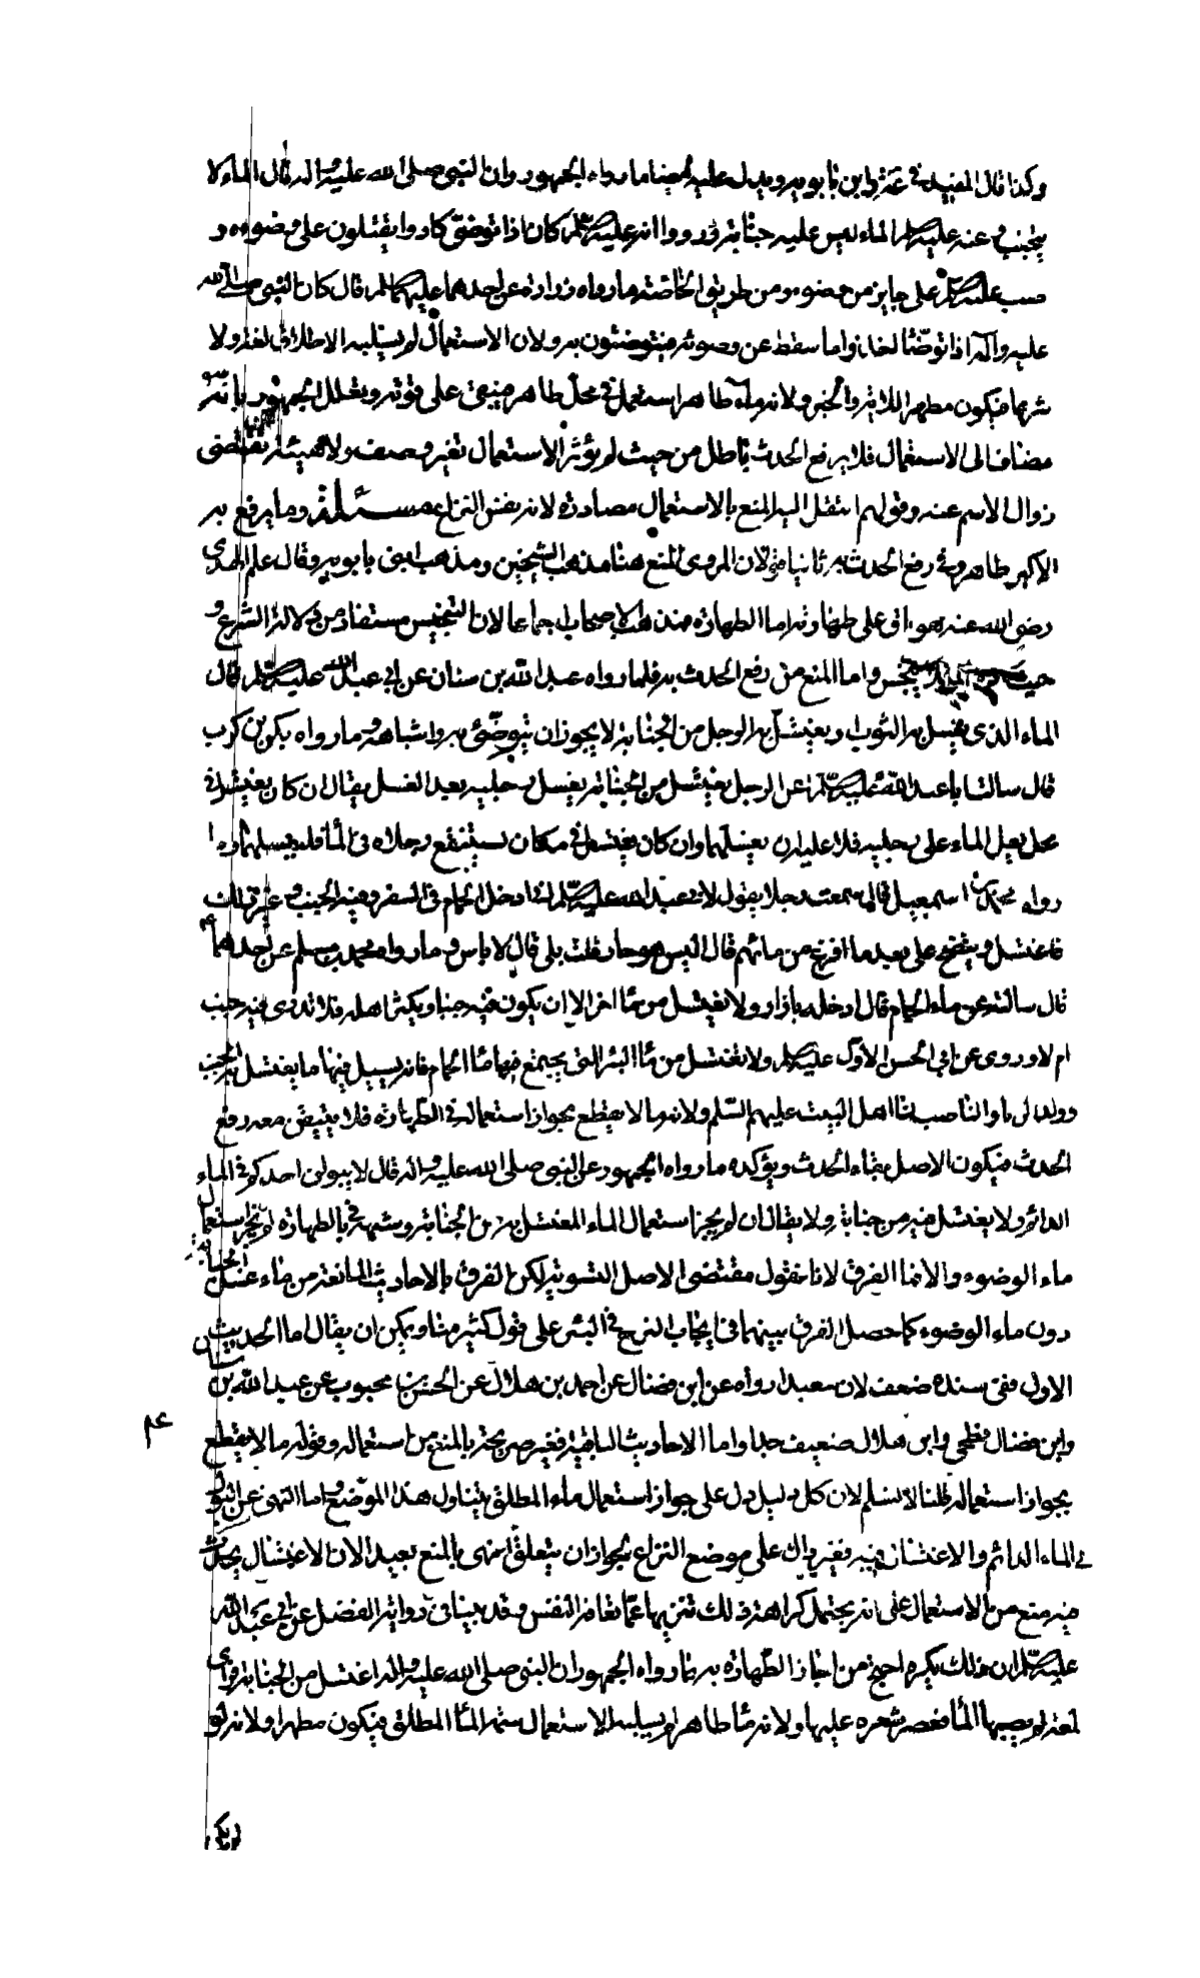 وكذا قال المفيد في وابن بابويه ويدل عليه أيضا ما رواه الجمهور وان النبي صلى الله عليه واله قال الماء لا
يجنب وعنه عليه السلم الماء ليس عليه جنابة ورووا انه عليه السلم كان اذا توضئ كادوا يقتتلون على وضوءه و
صب عليه السلم على جابر من وضوءه ومن طريق الخاصة ما رواه زرارة عن احدهما عليهما السلم قال كان النبي صلى الله
عليه وآله اذا توضّأ اخذوا ما سقط عن وضوئه فيتوضئون به ولان الاستعمال لم يسلبه الاطلاق لغة ولا
شرعا فيكون مطهرا للاية والخبر ولانه ماء طاهر استعمل في محل طاهر فيبقى على قوته وتعلل الجمهور بانّه
مضاف الى الاستعمال فلا يرفع الحدث باطل من حيث لم يؤثر الاستعمال تغير وصف ولا هيئة تقتضى
زوال الاسم عنه وقولهم انتقل اليه المنع بالاستعمال مصادرة لانه نفس النزاع مسئلة وما يرفع به
الاكبر طاهر وفي رفع الحدث به ثانيا قولان المروى المنع هذا مذهب الشيخين ومذهب ابنى بابويه وقال علم الهدى
رضي الله عنه هو باقى على طهارته اما الطهارة فمذهب الاصحاب اجماعا لان التنجيس مستفاد من دلالة الشرع و
حيث ينجس واما المنع من رفع الحدث به فلما رواه عبد الله بن سنان عن ابي عبد الله عليه السلم قال
الماء الذى يغسل به الثوب او يغتسل به الرجل من الجنابة لا يجوز ان يتوضّئ به واشباهه وما رواه بكر بن كرب
قال سالت ابا عبد الله عليه السلم عن الرجل يغتسل من الجنابة يغسل رجليه بعد الغسل فقال ان كان يغتسل في
محل يصل الماء على رجليه فلا عليه ان يغسلهما وان كان يغتسل في مكان يستنقع رجلاه في الماء فليغسلهما وما
رواه محمد بن اسمعيل قال سمعت رجلا يقول لابي عبد الله عليه السلم انا ادخل الحمام في السفر وفيه الجنب وغير ذلك
فاغتسل وينتضح على بعد ما افرغ من مائهم قال اليس هو جار قلت بلى قال لا باس وما رواه محمد بن مسلم عن احدهما
قال سالته عن ماء الحمام قال ادخله بازار ولا تغتسل من ماء اخر الا ان يكون فيه جنبا ويكثر اهله فلا تدرى فيه جنب
ام لا وروى عن ابي الحسن الاول عليه السلم ولا تغتسل من ماء البئر التى يجتمع فيها ماء الحمام فانه يسيل فيها ما يغتسل به الجنب
وولد الزنا والناصب لنا اهل البيت عليهم السّلم ولانه ما لا يقطع بجواز استعماله في الطهارة فلا يتيقن معه رفع
الحدث فيكون الاصل بقاء الحدث ويؤكده ما رواه الجمهور عن النبي صلى الله عليه واله قال لا يبولن احدكم في الماء
الدائم ولا يغتسل فيه من جنابة ولا يقال ان لم يجز استعمال الماء المغتسل به من الجنابة وشبهه في الطهارة لم يجز استعمال
ماء الوضوء والا فما الفرق لانا نقول مقتضى الاصل التسوية لكن الفرق بالاحاديث المانعة من ماء غسل الجنابة
دون ماء الوضوء كما حصل الفرق بينهما في ايجاب النزح في البئر على قول كثير منا ويمكن ان يقال اما الحديث
الاول ففى سنده ضعف لان سعيدا رواه عن ابن فضال عن احمد بن هلال عن الحسن بن محبوب عن عبد الله بن سنان
وابن فضال فطحى وابن هلال ضعيف جدا واما الاحاديث الباقية فغير صريحة بالمنع من استعماله وقوله ما لا يقطع
بجواز استعماله قلنا لا نسلم لان كل دليل دل على جواز استعمال ماء المطلق يتناول هذا الموضع واما النهى عن البول
في الماء الدائم والاغتسال فيه فغير دال على موضع النزاع لجواز ان يتعلق النهى بالمنع تعبدا لا لان الاغتسال يحدث
فيه منع من الاستعمال على انه يحتمل كراهة ذلك تنزيها عمّا تعافه النفس وقد بينا في رواية الفضل عن ابي عبد الله
عليه السلم ان ذلك يكره احتج من اجاز الطهارة به بما رواه الجمهور ان النبي صلى الله عليه واله اغتسل من الجنابة فراى
لمعة لم يصبها الماء فعصر شعره عليها ولانه ماء طاهر لم يسلبه الاستعمال سمة الماء المطلق فيكون مطهرا ولانه لو